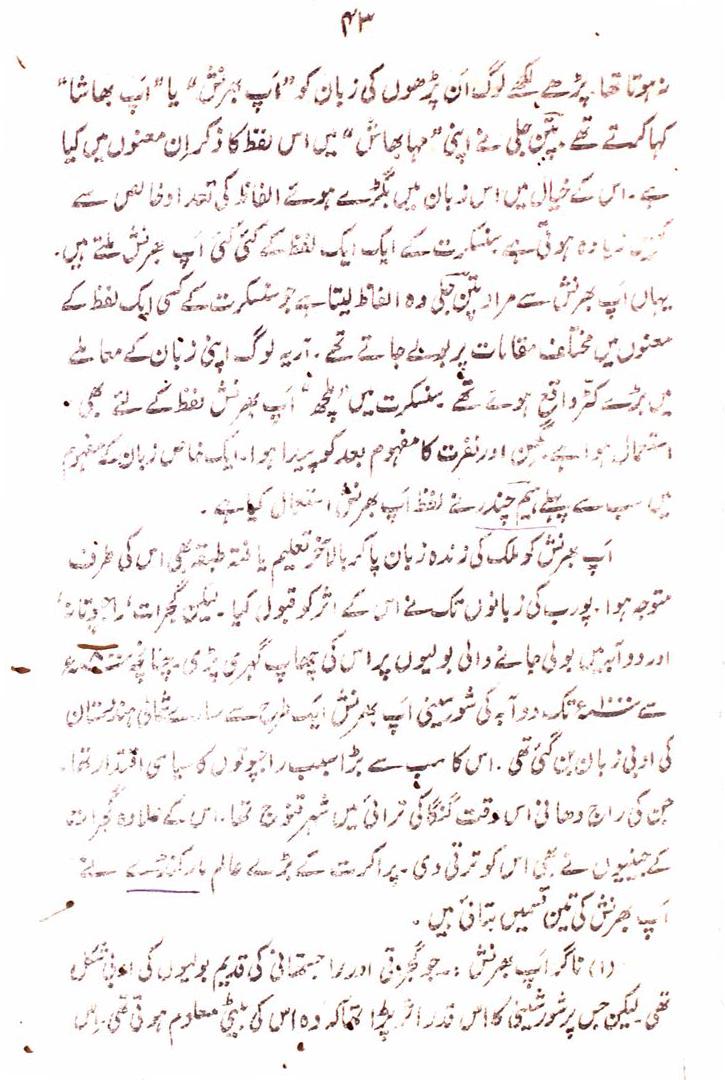 ۴۳
نہ ہوتا تھا۔ پڑھے لکھے لوگ ان پڑھوں کی زبان کو "اَپ بھرنش" یا "اَپ بھاشا"
کہا کرتے تھے۔ پتن جلی نے اپنی "مہا بھاش" میں اس لفظ کا ذکر ان معنوں میں کیا
ہے۔ اس کے خیال میں اس زبان میں بگڑے ہوئے الفاظ کی تعداد خالص سے
کہیں زیادہ ہوتی ہے سنسکرت کے ایک ایک لفظ کے کئی کئی اَپ بھرنش ملتے ہیں۔
یہاں اَپ بھرنش سے مراد پتن جلی وہ الفاظ لیتا ہے جو سنسکرت کے کسی ایک لفظ کے
معنوں میں مختلف مقامات پر بولے جاتے تھے۔ آریہ لوگ اپنی زبان کے معاملے
میں بڑے کٹر واقع ہوئے تھے۔ سنسکرت میں "ملچھ" اَپ بھرنش لفظ کے لئے بھی
استعمال ہوا ہے۔ گھن اور نفرت کا مفہوم بعد کو پیدا ہوا۔ ایک خاص زبان کے مفہوم
میں سب سے پہلے ہیم چندر نے لفظ اَپ بھرنش استعمال کیا ہے۔
اَپ بھرنش کو ملک کی زندہ زبان پاکر بالآخر تعلیم یافتہ طبقہ بھی اس کی طرف
متوجہ ہوا۔ پورب کی زبانوں تک نے اس کے اثر کو قبول کیا۔ لیکن گجرات، راجپوتانہ،
اور دوآبہ میں بولی جانے والی بولیوں پر اس کی چھاپ گہری پڑی۔ چنانچہ
سے ۱۰۰۰ء تک دوآبہ کی شورسینی اَپ بھرنش ایک طرح سے سارے شمالی ہندستان
کی ادبی زبان بن گئی تھی۔ اس کا سب سے بڑا سبب راجپوتوں کا سیاسی اقتدار تھا۔
جن کی راج دھانی اس وقت گنگا کی ترائی میں شہر قنوج تھا۔ اس کے علاوہ گجرات
کے جینیوں نے بھی اس کو ترقی دی۔ پراکرت کے بڑے عالم مارکنڈے نے
اَپ بھرنش کی تین قسمیں بتائی ہیں۔
(۱) ناگر اَپ بھرنش :۔ جو گجراتی اور راجستھانی کی قدیم بولیوں کی ادبی شکل
تھی۔ لیکن جس پر شورسینی کا اس قدر اثر پڑا تھا کہ وہ اس کی بیٹی معلوم ہوتی تھی۔ اس